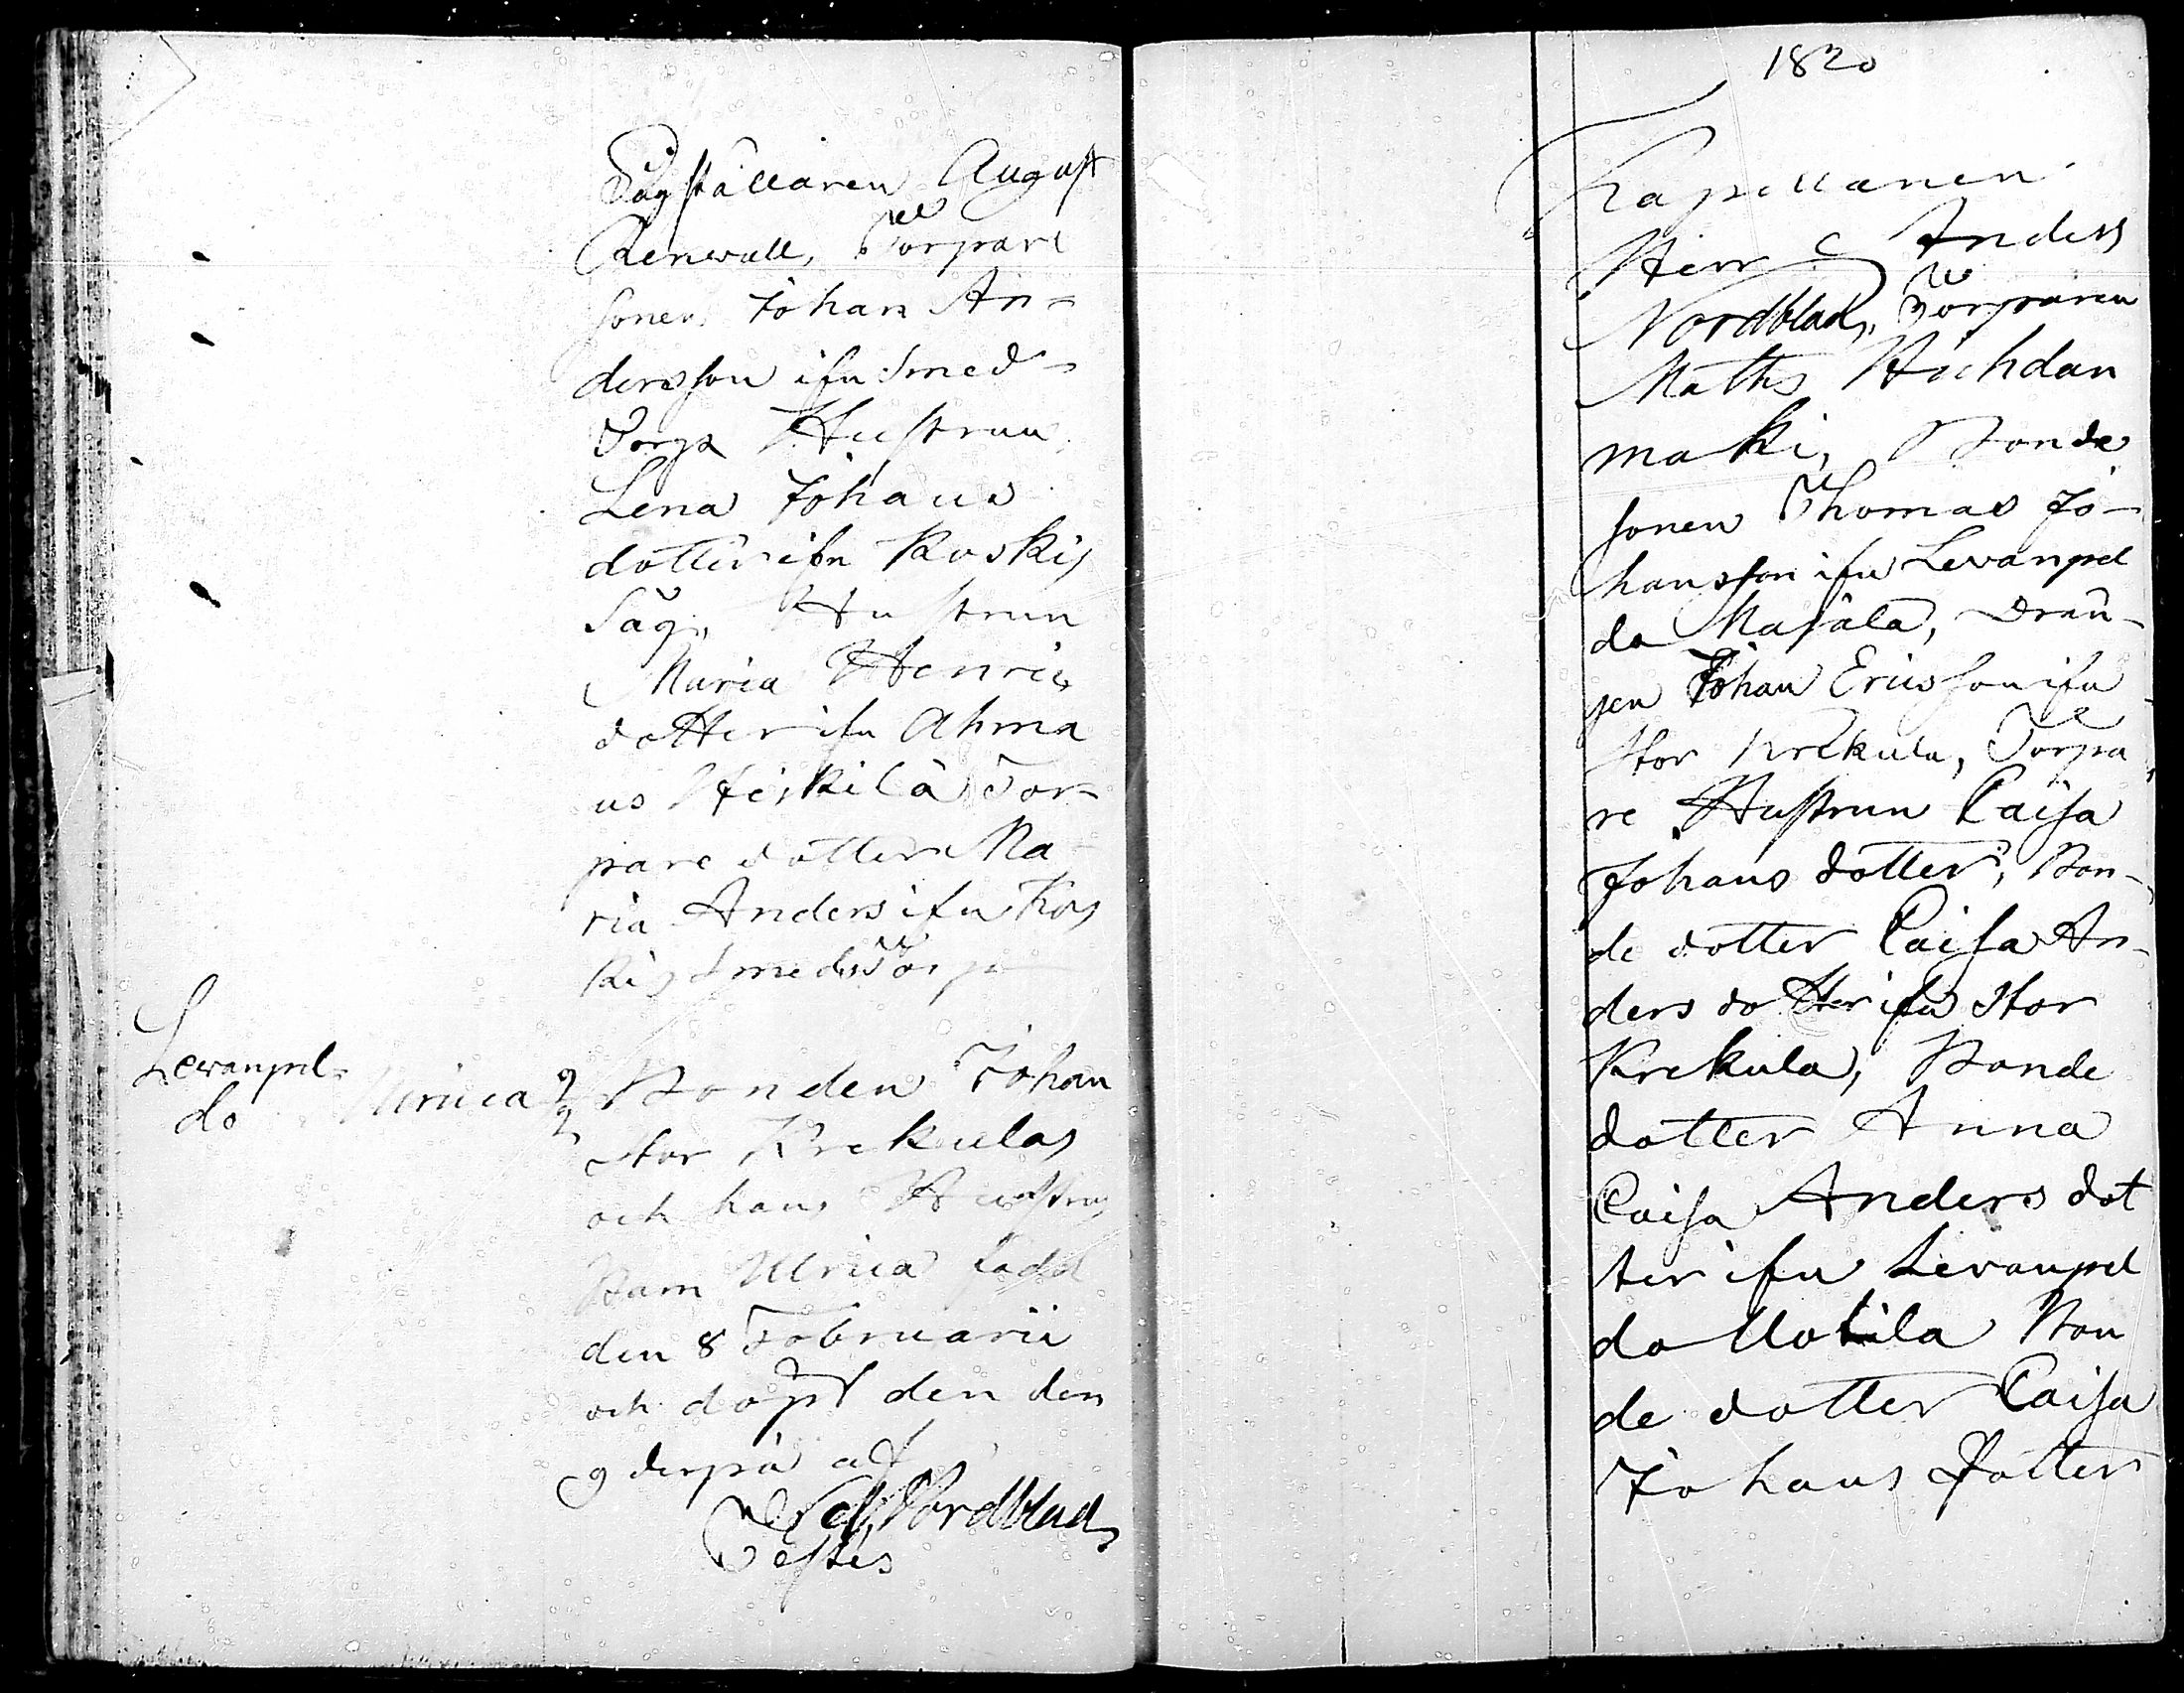 Sågställaren August
Renwall, Torpare
sonen Johan An-
dersson ifrn Smed-
Torpa Hustrun
Lena Johans
dotter ifrn Koskis
Såg, Hustrun
Maria Henrics
dotter ifrn Ahma
us Heikilä Tor-
pare dotter Ma-
ria Anders ifrn Kos
kis Smeds Torp
Levanpel-
do Ulrica 9/2 Bonden Johan
Stor Krekulas
och hans Hustrus
Barn Ulrica född
den 8 Februarii
och döpt den den
9 derpå af
And. Nordblad
Testes
1820
Kapellanen
Herr Anders
Nordblad, Torparen
Maths Huhdan
maki, Bonde
sonen Thomas Jo-
hansson ifrn Levanpel
do Masala, Drän-
gen Johan Ericsson ifrn
Stor Krekula, Torpa
re Hustrun Caisa
Johans dotter, Bon-
de dotter Caisa An-
ders dotter ifrn Stor
Krekula, Bonde
dotter Anna
Caisa Anders dot
ter ifrn Levanpel
do Uotila Bon
de dotter Caisa
Johans Dotter